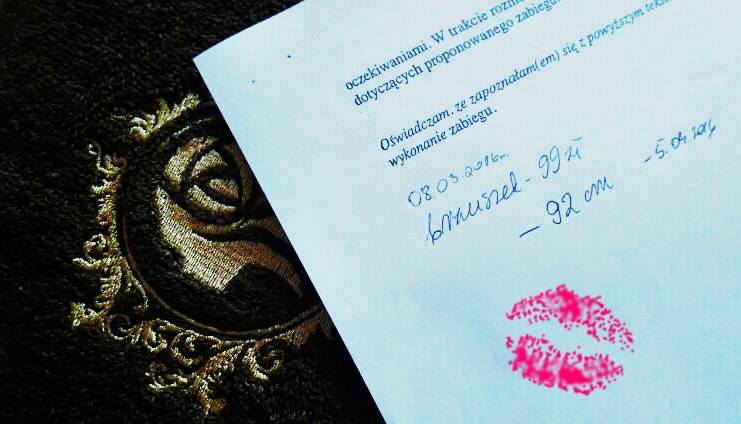 oczekiwaniami. W trakcie
dotyczących proponowanego zabiegu.
Oświadczam, ze zapoznałam(em) się z powyższym
wykonanie zabiegu.
08.03.2016r.
brzuszek - 99 zł
- 92 cm - 5.04.2016